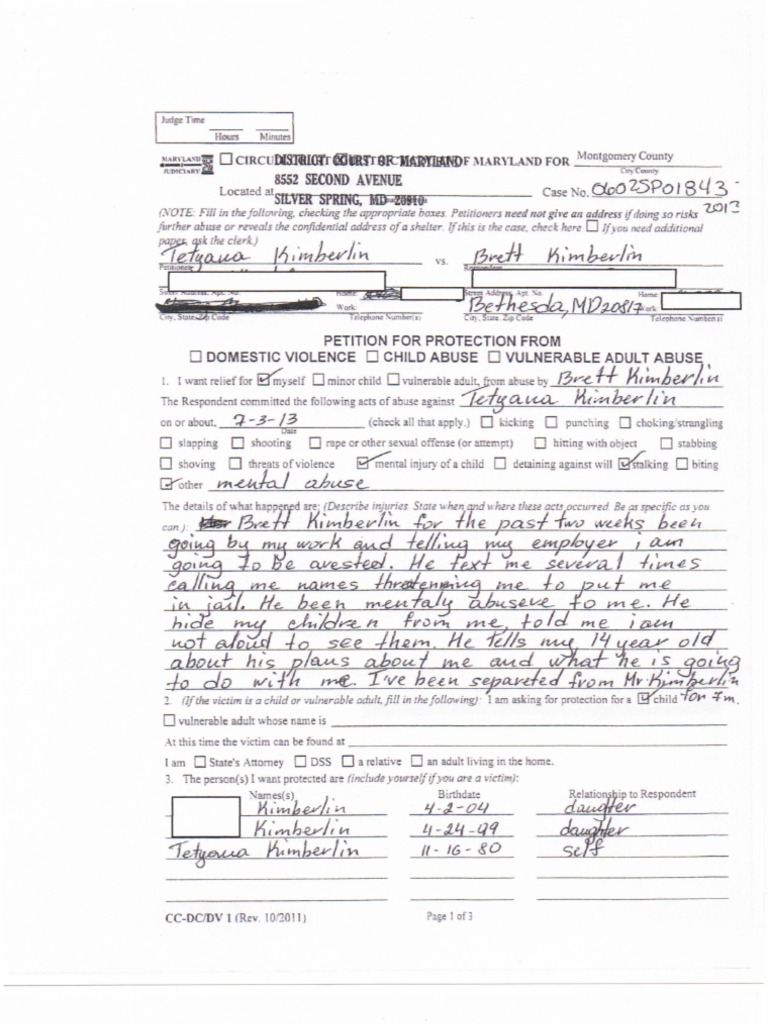 Judge Time
Hours Minutes
MARYLAND JUDICIARY ☐ CIRCUIT COURT ☒ DISTRICT COURT OF MARYLAND FOR Montgomery County
City/County
DISTRICT COURT OF MARYLAND
8552 SECOND AVENUE
SILVER SPRING, MD 20910
Located at Case No. 0602SP01843
2013
(NOTE: Fill in the following, checking the appropriate boxes. Petitioners need not give an address if doing so risks
further abuse or reveals the confidential address of a shelter. If this is the case, check here ☐ If you need additional
paper, ask the clerk.)
Tetyana Kimberlin vs. Brett Kimberlin
Petitioner Respondent
Street Address, Apt. No. Home: Street Address, Apt. No. Home:
Work: Bethesda, MD 20817 Work:
City, State, Zip Code Telephone Number(s) City, State, Zip Code Telephone Number(s)
PETITION FOR PROTECTION FROM
☐ DOMESTIC VIOLENCE ☐ CHILD ABUSE ☐ VULNERABLE ADULT ABUSE
1. I want relief for ☑ myself ☐ minor child ☐ vulnerable adult, from abuse by Brett Kimberlin
The Respondent committed the following acts of abuse against Tetyana Kimberlin
on or about, 7-3-13 (check all that apply.) ☐ kicking ☐ punching ☐ choking/strangling
Date
☐ slapping ☐ shooting ☐ rape or other sexual offense (or attempt) ☐ hitting with object ☐ stabbing
☐ shoving ☐ threats of violence ☑ mental injury of a child ☐ detaining against will ☑ stalking ☐ biting
☑ other mental abuse
The details of what happened are: (Describe injuries. State when and where these acts occurred. Be as specific as you
can.): Brett Kimberlin for the past two weeks been
going by my work and telling my employer i am
going to be arested. He text me several times
calling me names thretening me to put me
in jail. He been mentaly abuseve to me. He
hide my children from me, told me i am
not aloud to see them. He tells my 14 year old
about his plans about me and what he is going
to do with me. I've been separeted from Mr. Kimberlin
for 7m.
2. (If the victim is a child or vulnerable adult, fill in the following): I am asking for protection for a ☑ child
☐ vulnerable adult whose name is
At this time the victim can be found at
I am ☐ State's Attorney ☐ DSS ☐ a relative ☐ an adult living in the home.
3. The person(s) I want protected are (include yourself if you are a victim):
Names(s) Birthdate Relationship to Respondent
Kimberlin 4-2-04 daugter
Kimberlin 4-24-99 daughter
Tetyana Kimberlin 11-16-80 self
CC-DC/DV 1 (Rev. 10/2011) Page 1 of 3